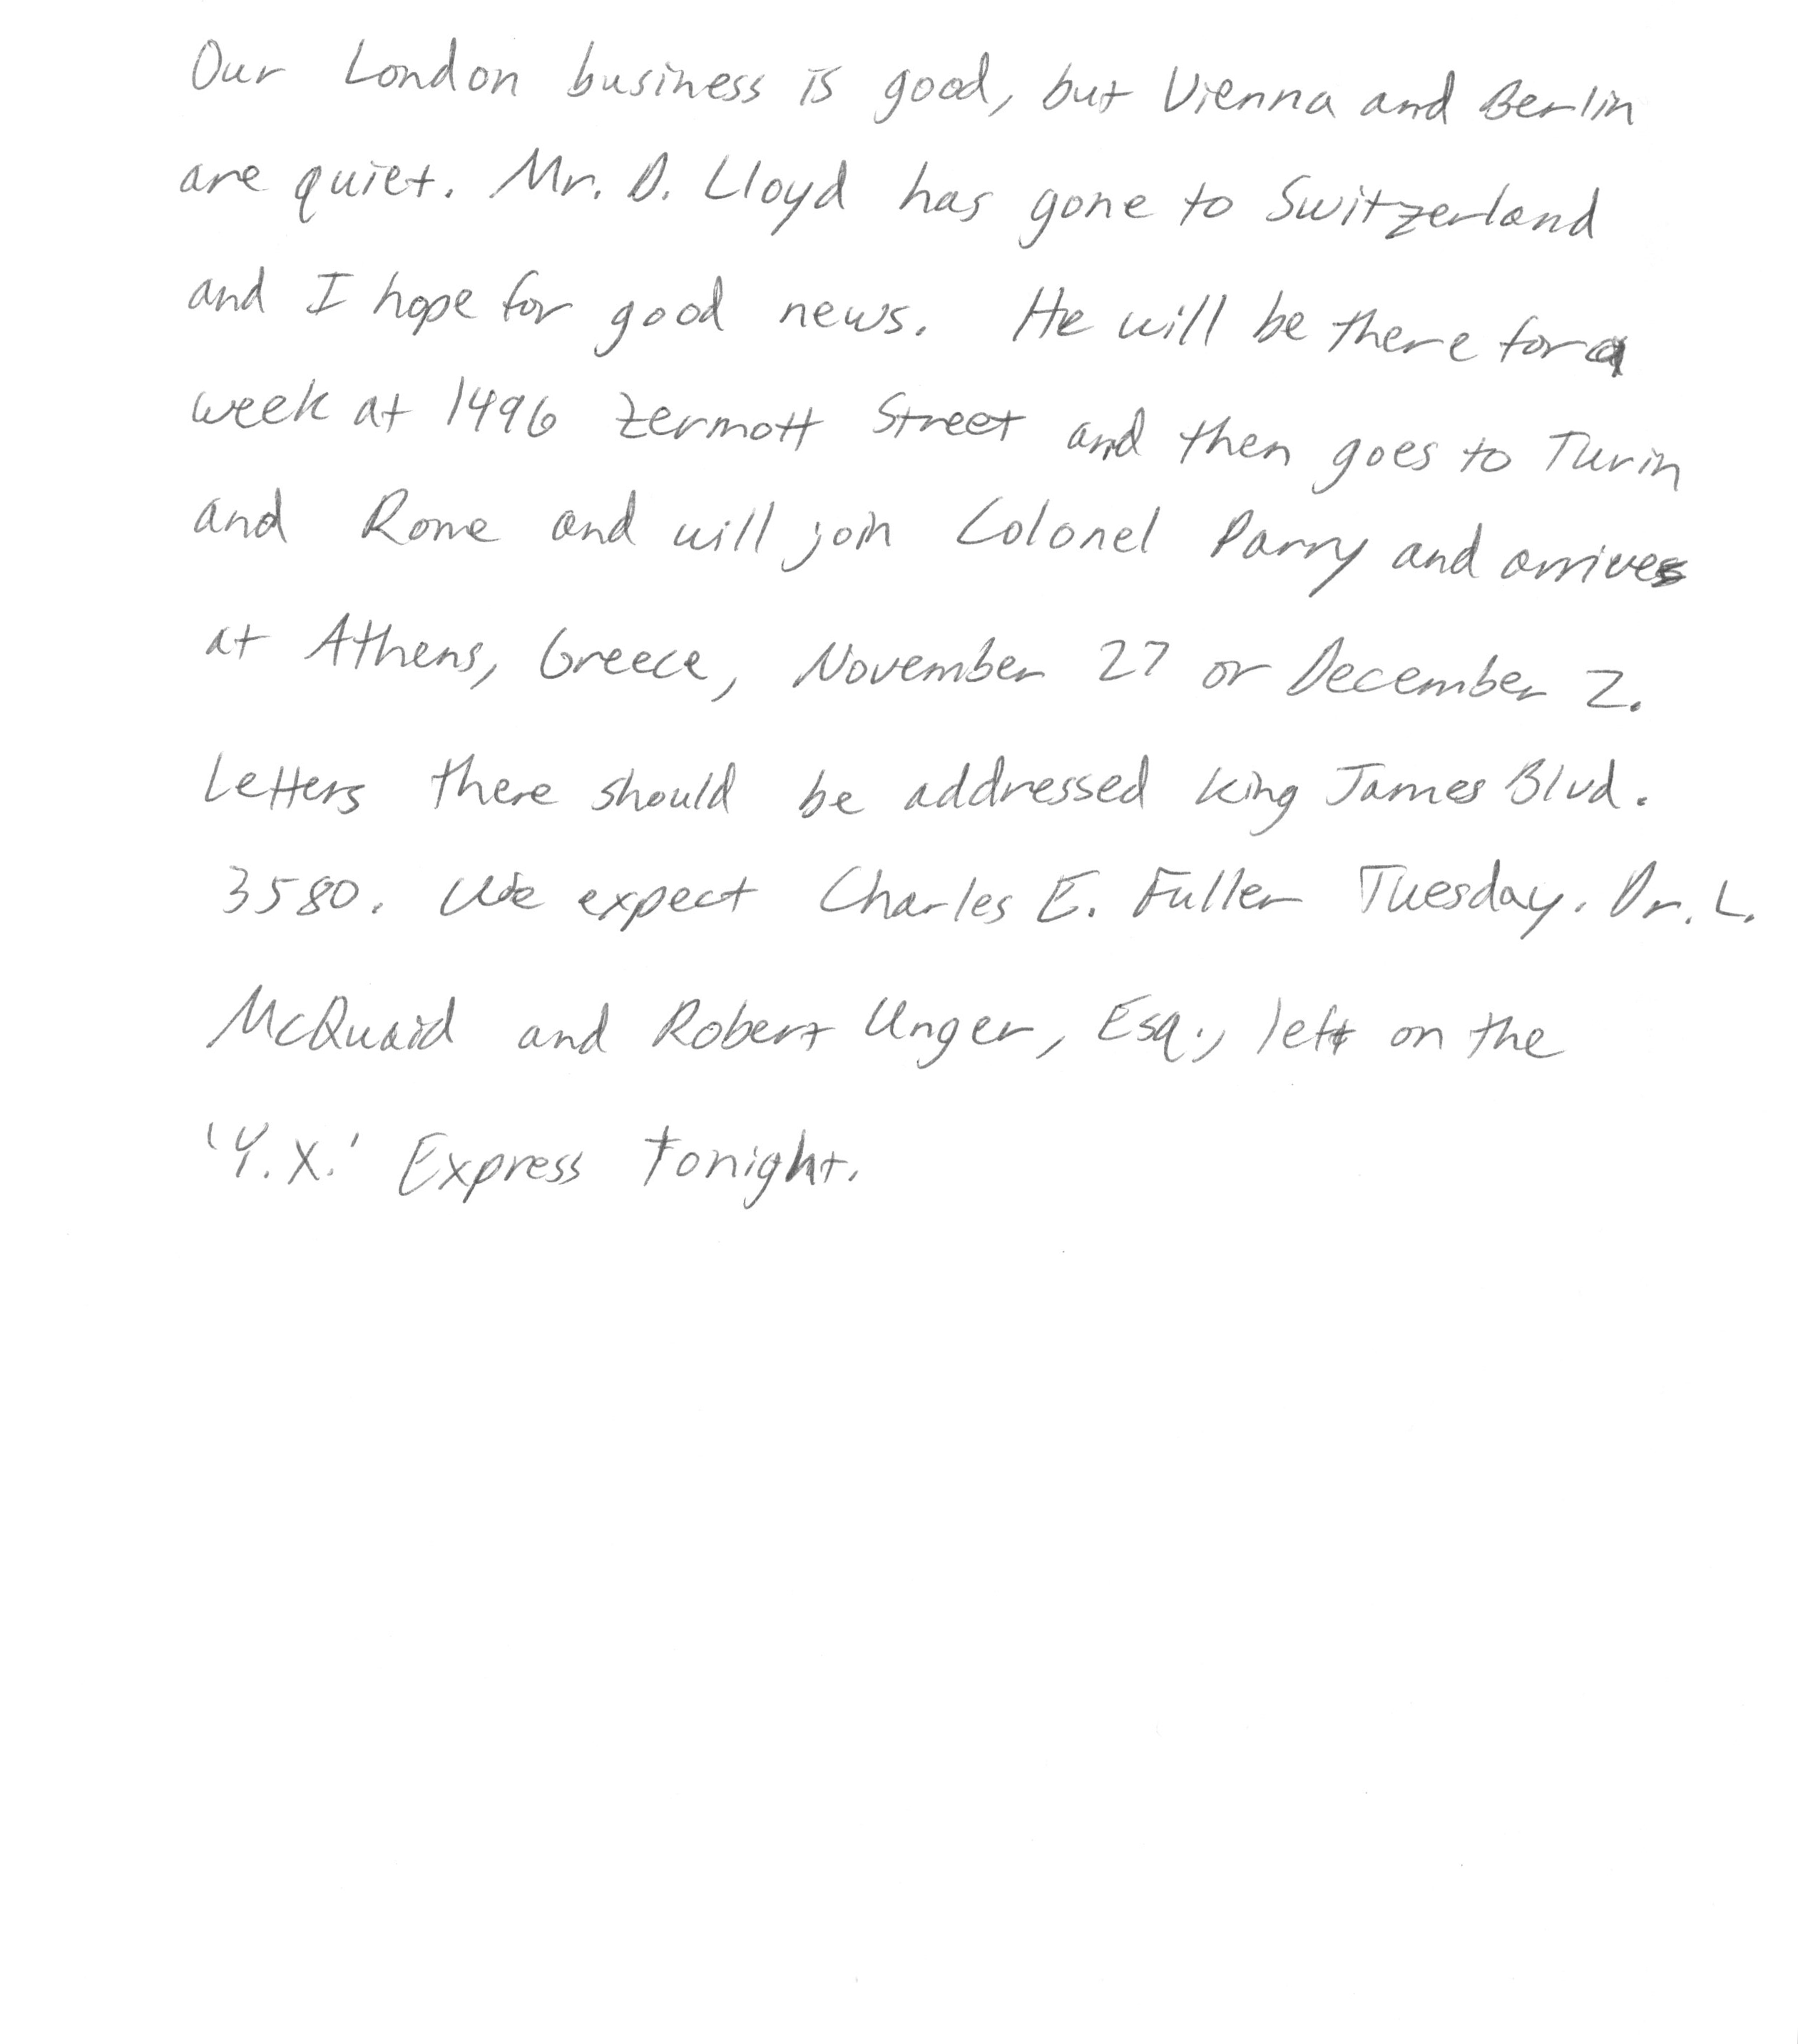 Our London business is good, but Vienna and Berlin
are quiet. Mr. D. Lloyd has gone to Switzerland
and I hope for good news. He will be there for a
week at 1496 Zermott Street and then goes to Turin
and Rome and will join Colonel Parry and arrives
at Athens, Greece, November 27 or December 2.
Letters there should be addressed King James Blvd.
3580. We expect Charles E. Fuller Tuesday. Dr. L.
McQuaid and Robert Unger, Esq., left on the
'Y.X.' Express tonight.